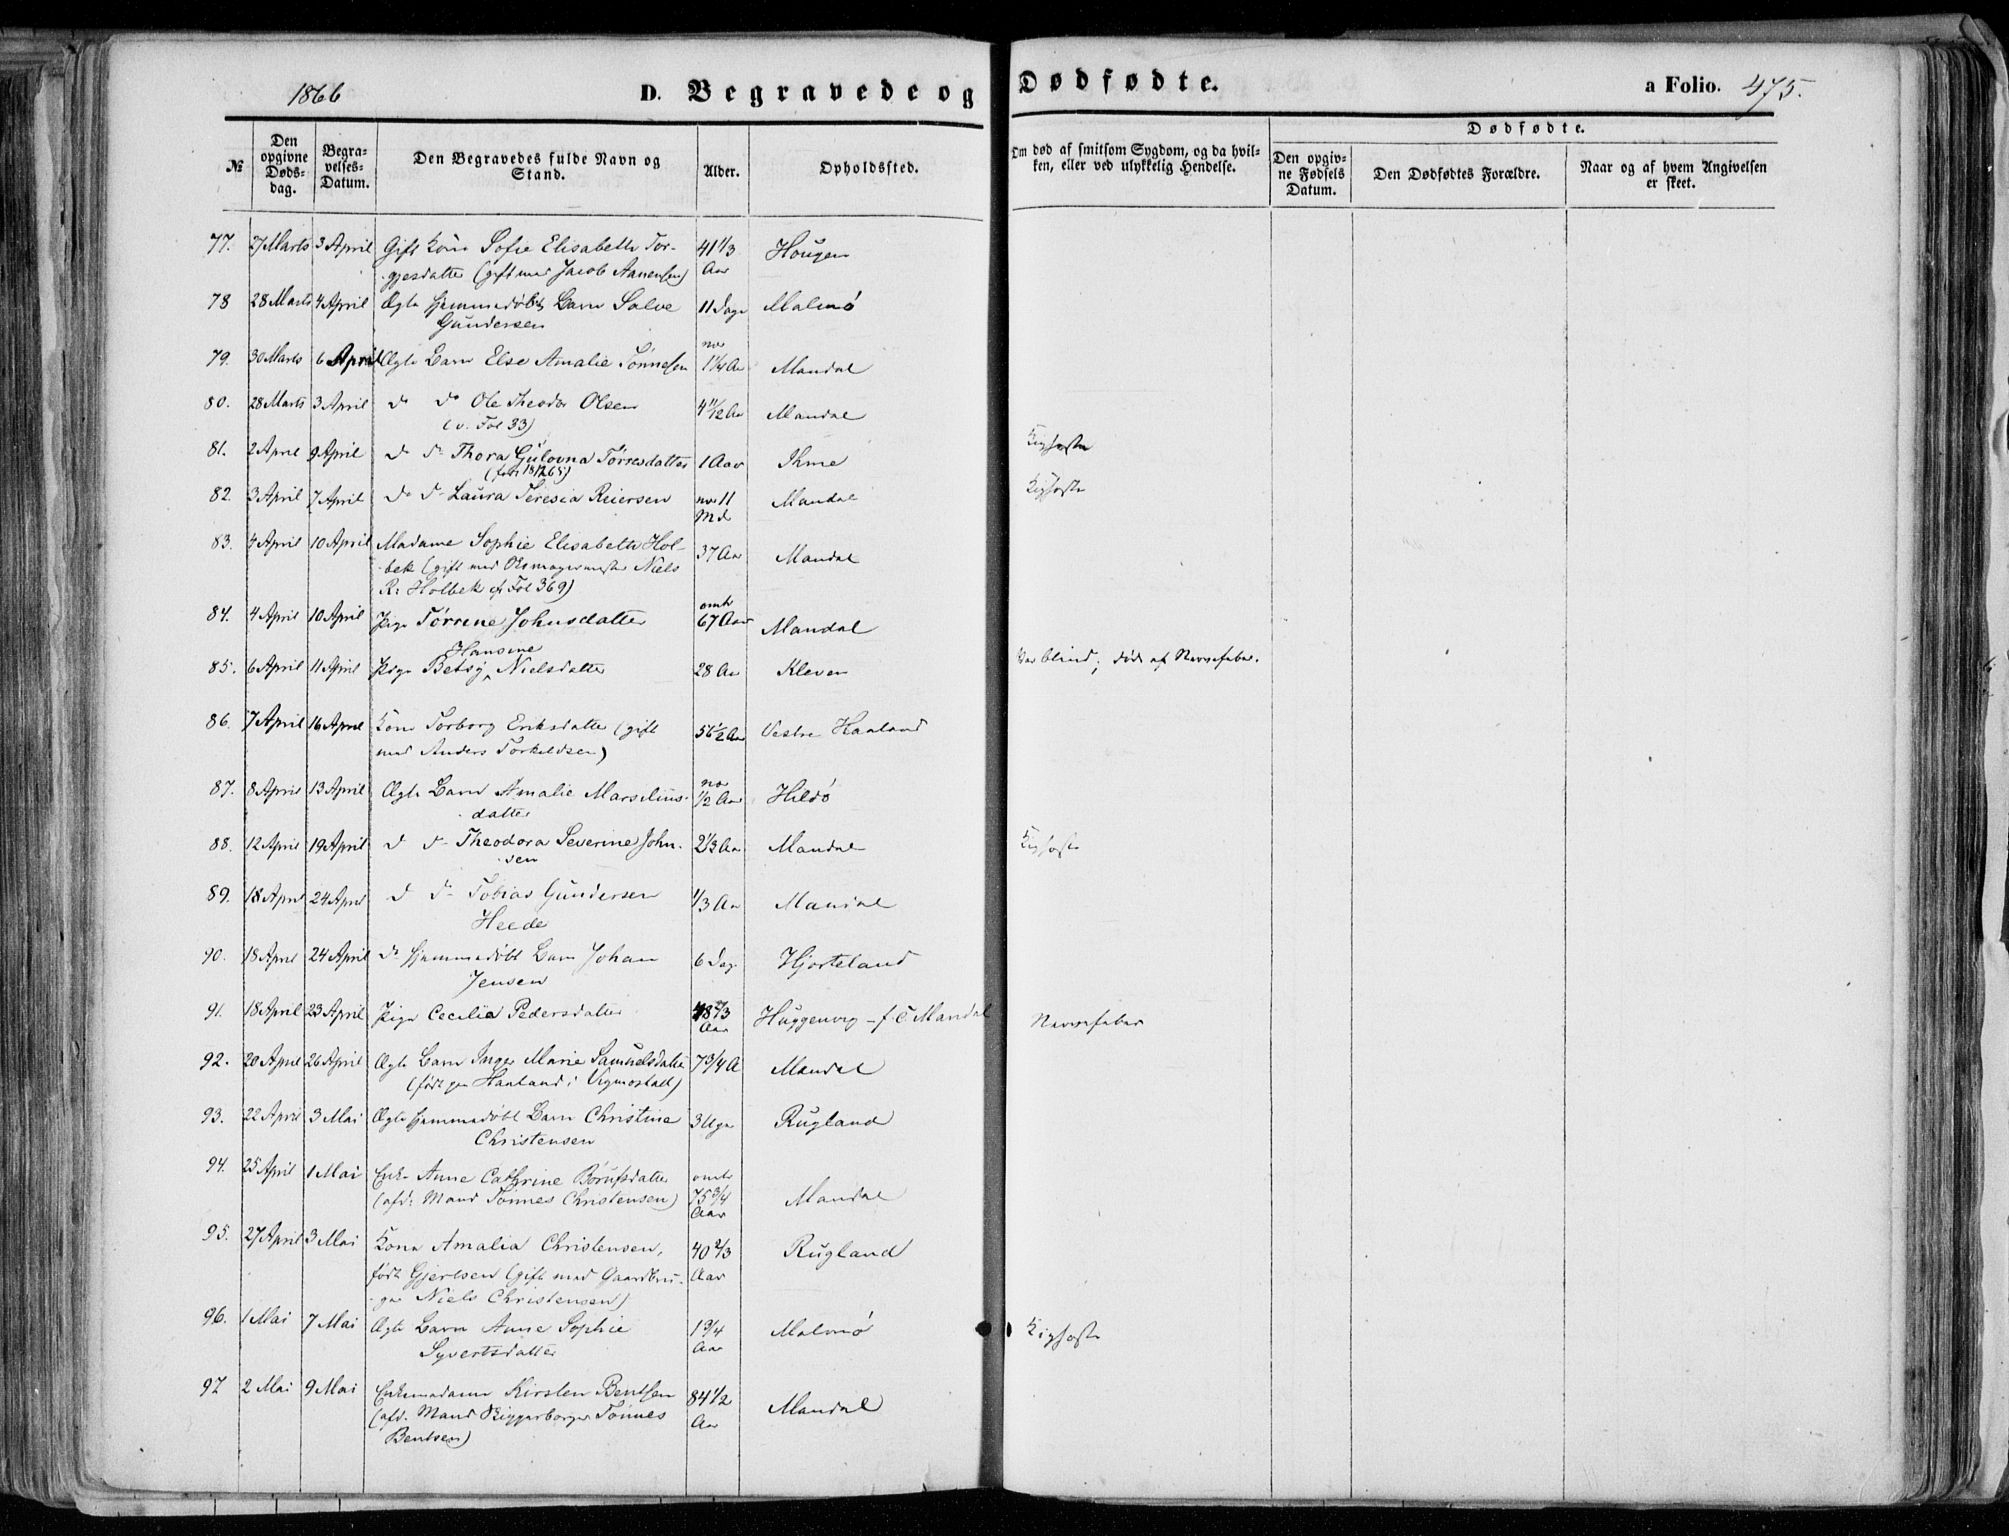 1866 D. Begravede og Dødfødte. a Folio. 475.
№ Den opgivne Døds-dag. Begra-velses-Datum. Den Begravedes fulde Navn og Stand. Alder. Opholdsted. Om død af smitsom Sygdom, og da hvil-ken, eller ved ulykkelig Hendelse. Dødfødte.
Den opgiv-ne Fødsels Datum. Den Dødfødtes Forældre. Naar og af hvem Angivelsen er skeet.
77. 27 Marts 3 April Gift Kone Sofie Elisabeth Tor- 41 1/3 Hougen
gjesdatter (gift med Jacob Aanensen) Aar
78 28 Marts 4 April Ægte hjemmedøbt Barn Salve 11 Dage Malmø
Gundersen
79. 30 Marts 6 April Ægte Barn Else Amalie Tønnesen 1 1/4 Aar Mandal
80. 28 Marts 3 April do do Ole Theodor Olsen 4 11/12 Aar Mandal
(v. Fol 33)
81. 2 April 9 April do do Thora Gulovna Tørresdatter 1 Aar Ime Kighoste
82. 3 April 7 April do do Laura Teresia Reiersen 11 Md Mandal Kighoste
83. 4 April 10 April Madame Sophie Elisabeth Hol- 37 Aar Mandal
bek (gift med Skomagermester Niels
R: Holbek cf Fol 369)
84. 4 April 10 April Pige Tørrine Johnsdatter omtr 67 Aar Mandal
85. 6 April 11 April Pige Betsy Hansine Nielsdatter 28 Aar Kleven Var blind; død af Nervefeber.
86. 7 April 16 April Kone Torborg Eriksdatter (gift 56 1/2 Aar Vestre Haaland
med Anders Torkildsen)
87. 8 April 13 April Ægte Barn Amalie Marselius- 1/2 Aar Hildø
datter
88. 12 April 19 April d do Theodora Severine John- 2 1/3 Aar Mandal Kighoste
sen
89. 18 April 24 April d do Tobias Gundersen 1/3 Aar Mandal
Heede
90. 18 April 24 April do hjemmedøbt Barn Johan 6 Dage Hjorteland
Jensen
91. 18 April 23 April Pige Cecilia Pedersdatter 48 2/3 Aar Huggenvig - f. T. Mandal Nervefeber
92. 20 April 26 April Ægte Barn Inger Marie Samuelsdatter 7 3/4 A Mandal
(født paa Haaland i Vigmostad)
93. 22 April 3 Mai Ægte hjemmedøbt Barn Christine 3 Uger Rugland
Christensen
94. 25 April 1 Mai Enke Anne Cathrine Børufsdatter omtr 75 3/4 Aar Mandal
(afd: Mand Tønnes Christensen)
95. 27 April 3 Mai Kone Amalia Christensen, 40 2/3 Aar Rugland
født Gjertsen (gift med Gaardbru-
ger Niels Christensen)
96. 1 Mai 7 Mai Ægte Barn Anne Sophie 1 3/4 Aar Malmø Kighoste
Syvertsdatter
97 2 Mai 9 Mai Enkemadame Kirsten Bentsen 84 1/2 Aar Mandal
(afd. Mand Skipperborger Tønnes
Bentsen)